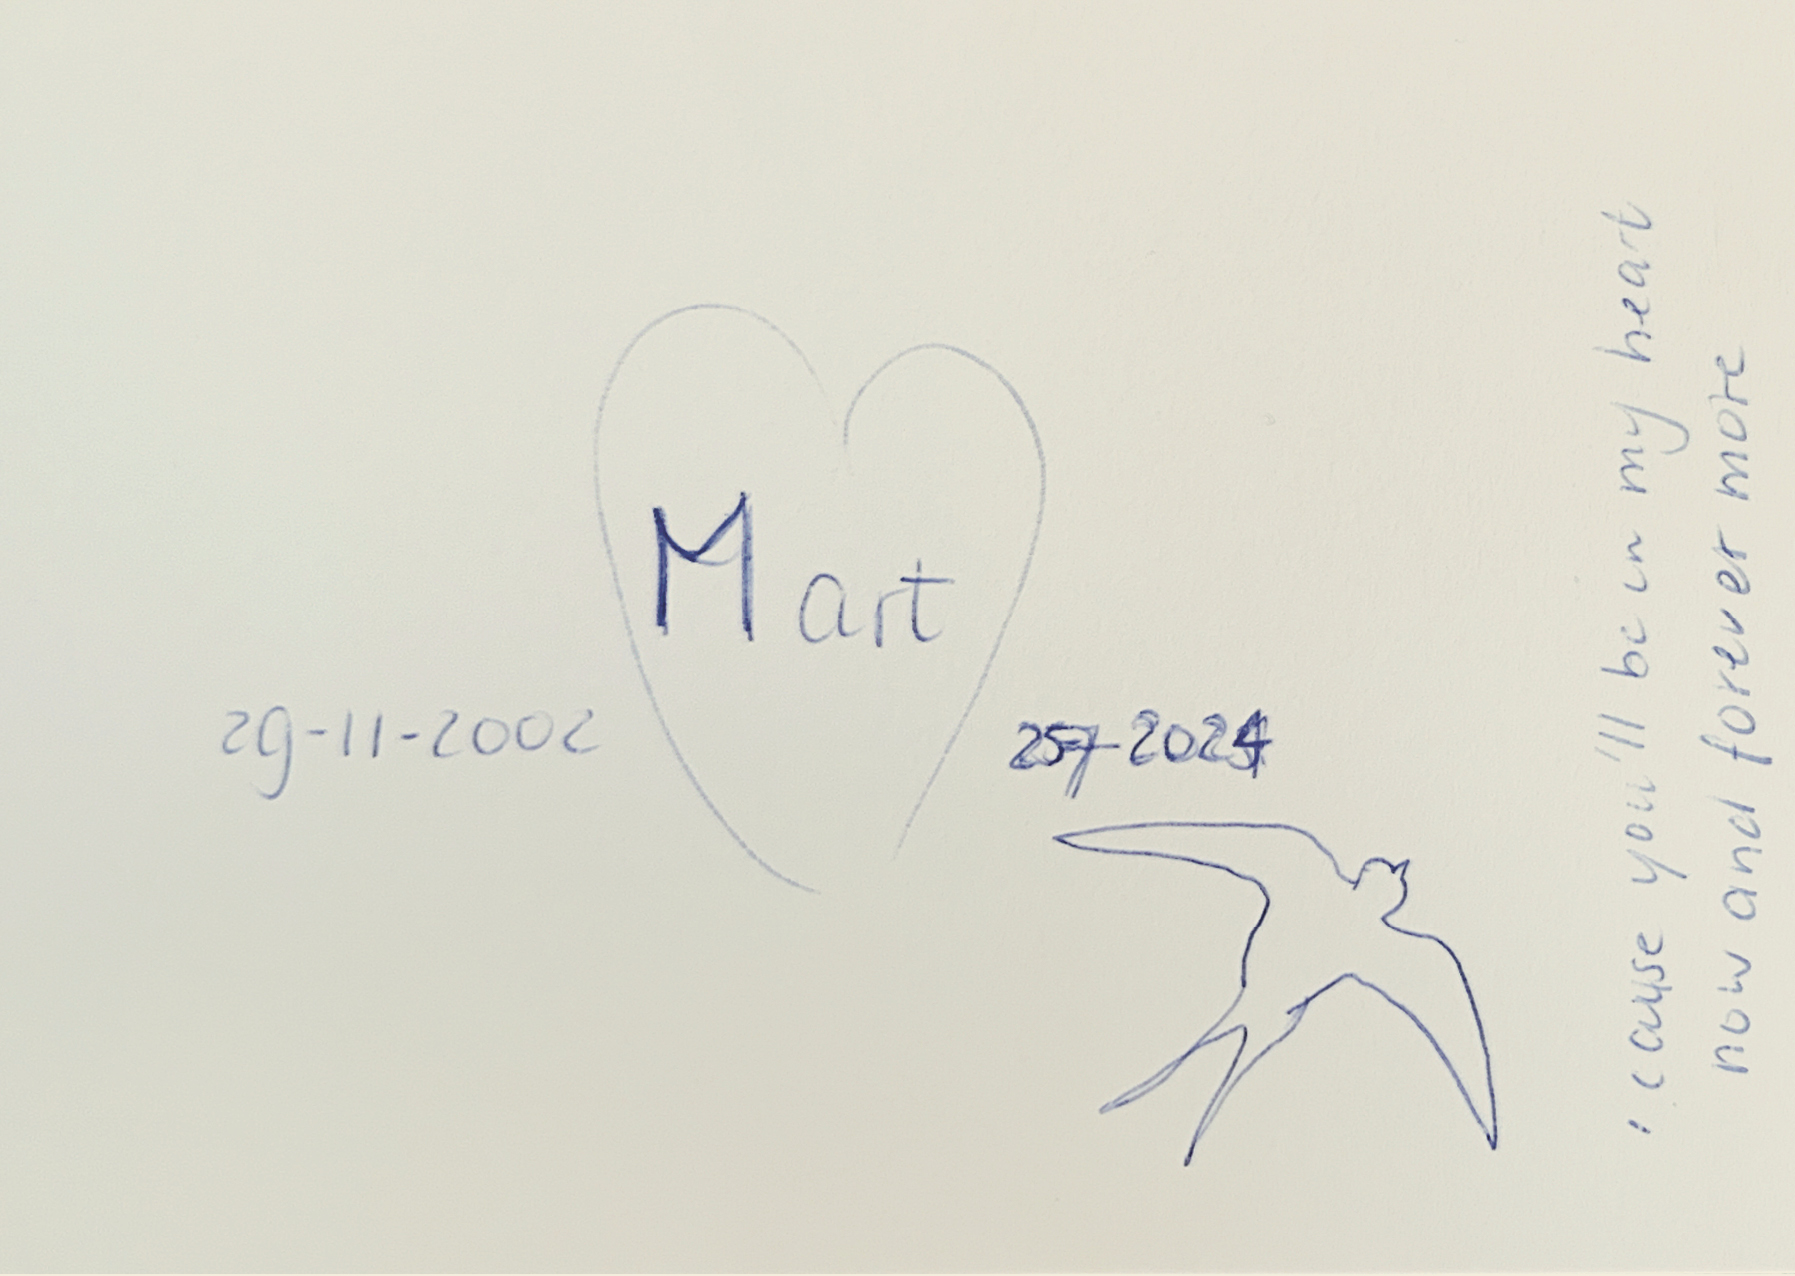 Mart
29-11-2002
257-2024
"cause you'll be in my heart
now and forever more